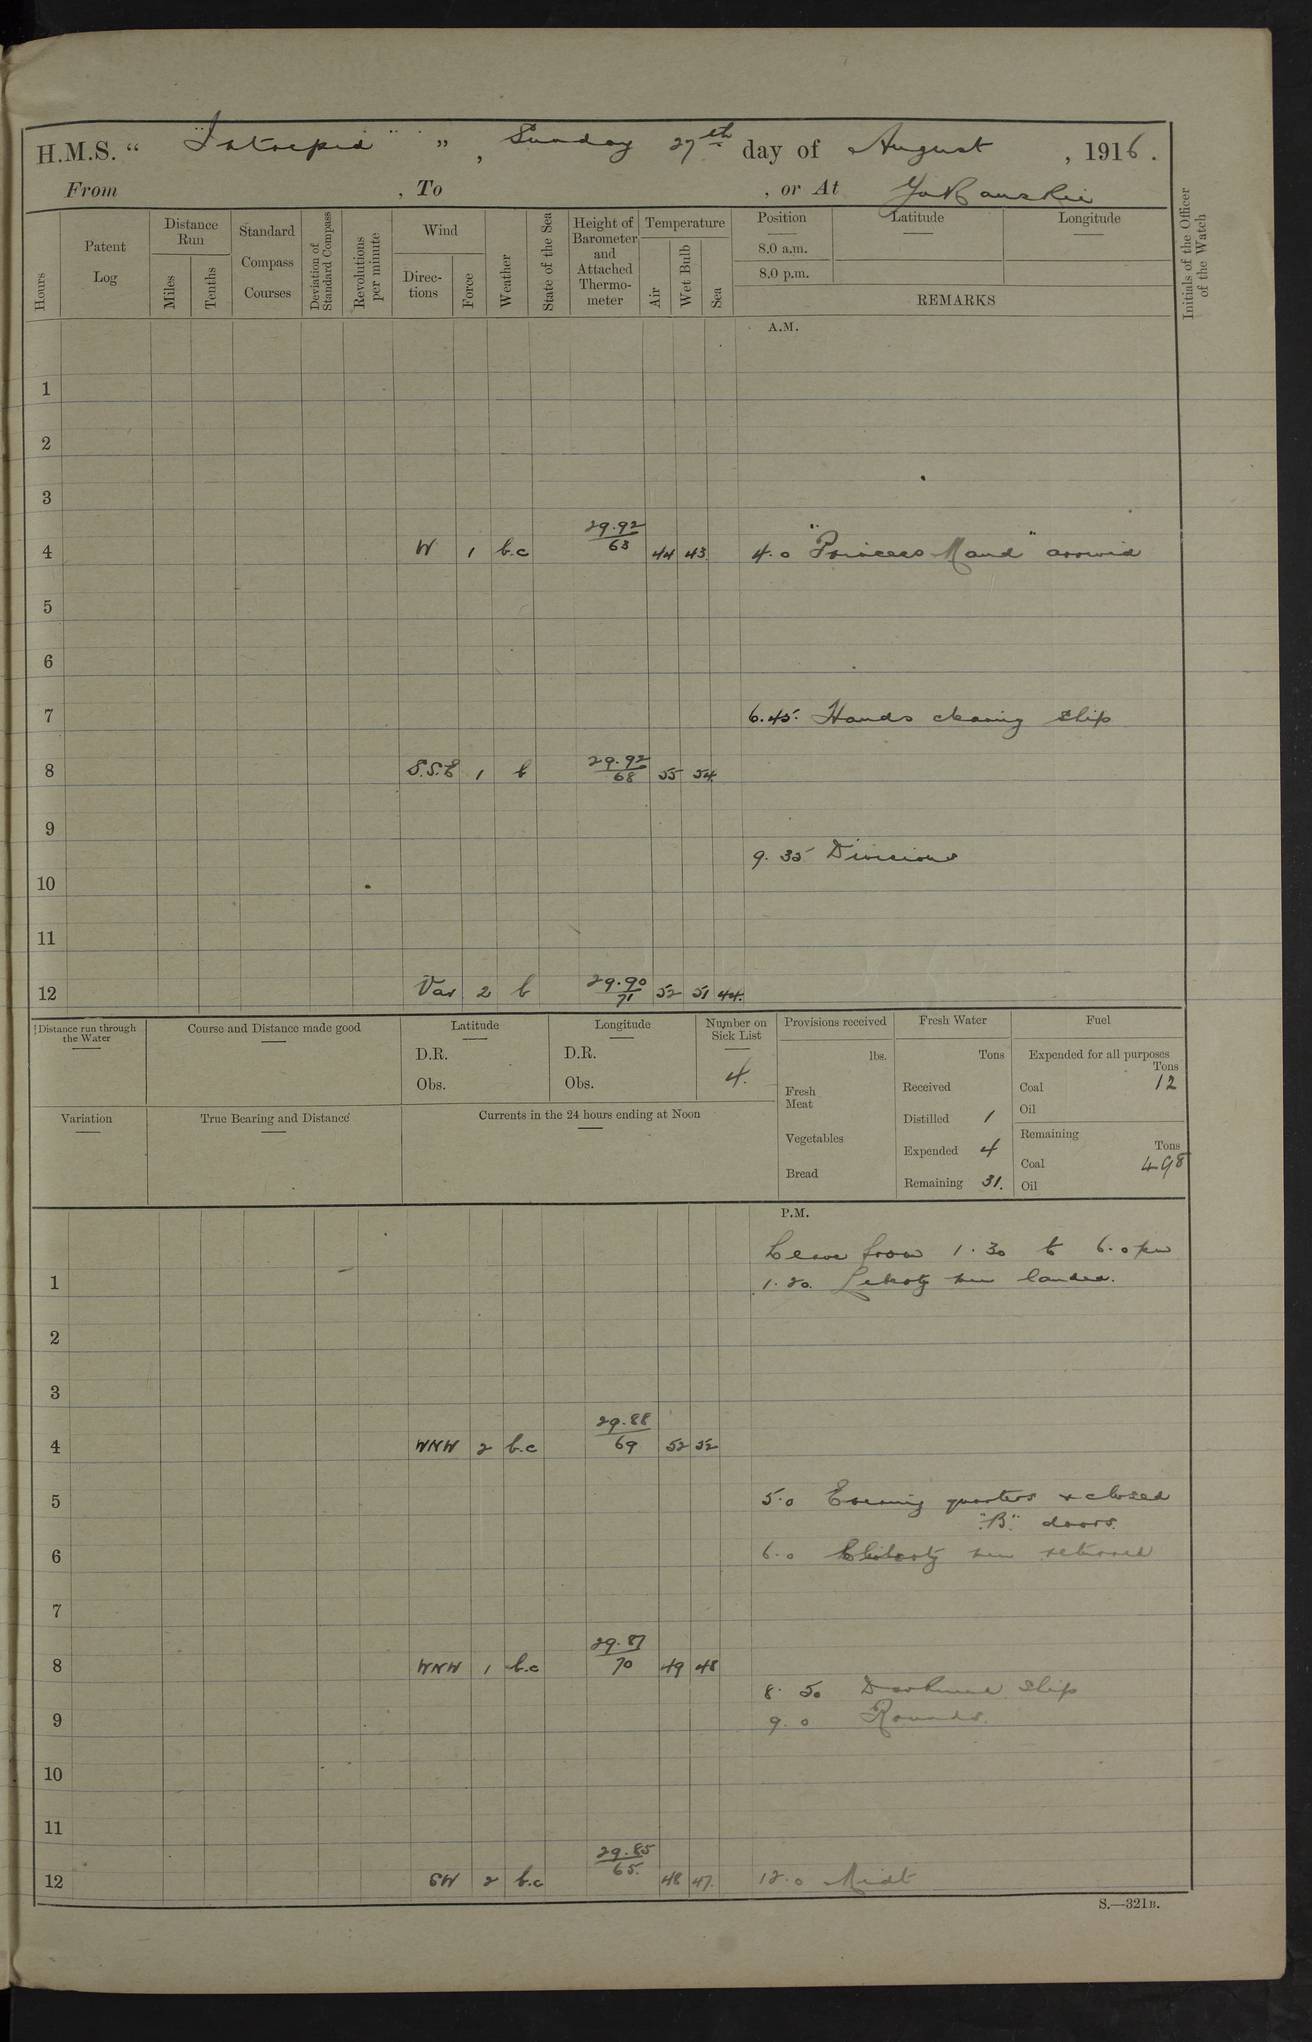 H.M.S. "Intrepid", Sunday 27th day of August, 1916.
From , To , or At Yukanskie
Hours
Patent Log
Distance Run
Miles
Tenths
Standard Compass Courses
Deviation of Standard Compass
Revolutions per minute
Wind
Directions
Force
Weather
State of the Sea
Height of Barometer and Attached Thermometer
Temperature
Air
Wet Bulb
Sea
Position
Latitude
Longitude
8.0 a.m.
8.0 p.m.
REMARKS
Initials of the Officer of the Watch
A.M.
1
2
3
4 W 1 b.c 29.92/63 44 43. 4.0 "Princess Maud" arrived
5
6
7 6.45. Hands cleaning ship
8 S.S.E 1 b 29.92/68 55 54.
9
9.35 Divisions
10
11
12 Var 2 b 29.90/71 52 51 44.
Distance run through the Water
Course and Distance made good
Latitude
D.R.
Obs.
Longitude
D.R.
Obs.
Number on Sick List
4.
Provisions received
lbs.
Fresh Meat
Vegetables
Bread
Fresh Water
Tons
Received
Distilled 1
Expended 4
Remaining 31.
Fuel
Expended for all purposes
Tons
Coal 12
Oil
Remaining
Tons
Coal 498
Oil
Variation
True Bearing and Distance
Currents in the 24 hours ending at Noon
P.M.
Leave from 1.30 to 6.0 pm
1 1.20. Liberty men landed.
2
3
4 WNW 2 b.c 29.88/69 52 52
5 5.0 Evening quarters & closed
"B" doors.
6 6.0 Liberty men returned
7
8 WNW 1 b.c 29.87/70 49 48
8.50 Darkened ship
9 9.0 Rounds.
10
11
12 SW 2 b.c 29.85/65. 48 47. 12.0 Midt
S.—321B.